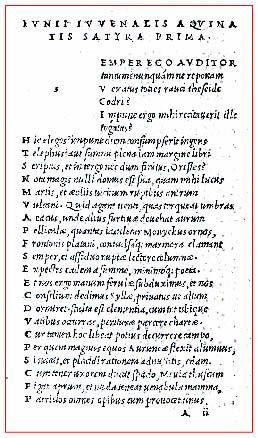 IVNII IVVENALIS AQVINA
TIS SATYRA PRIMA.
s EMPER EGO AVDITOR
tantum? nunquám ne reponam
Vexatus toties rauci theseide
Codri?
Impune ergo mihi recitauerit ille
togatas?
Hic elegos? impune diem consumpserit ingens
Telephus? aut summi plena iam margine libri
Scriptus, et in tergo nec dum finitus, Orestes?
Nota magis nulli domus est sua, quam mihi lucus
Martis, et æoliis uicinum rupibus antrum
Vulcani. Quid agant uenti, quas torqueat umbras
Aeacus, unde alius furtiuæ deuehat aurum
Pelliculæ, quantas iaculetur Monychus ornos,
Frontonis platani, conuulsáq; marmora clamant
Semper, et assiduo ruptæ lectore columnæ.
Expectes eadem a summo, minimóq; poeta.
Et nos ergo manum ferulæ subduximus, et nos
Consilium dedimus Syllæ, priuatus ut altum
Dormiret. stulta est clementia, cum tot ubique
Vatibus occurras, perituræ parcere chartæ.
Cur tamen hoc libeat potius decurrere campo,
Per quem magnus equos Auruncæ flexit alumnus,
Si uacat, et placidi rationem admittitis, edam.
Cum tener uxorem ducat spado, Meuia thuscum
Figat aprum, et nuda teneat uenabula mamma,
Patricios omnes opibus cum prouocet unus,
A ii